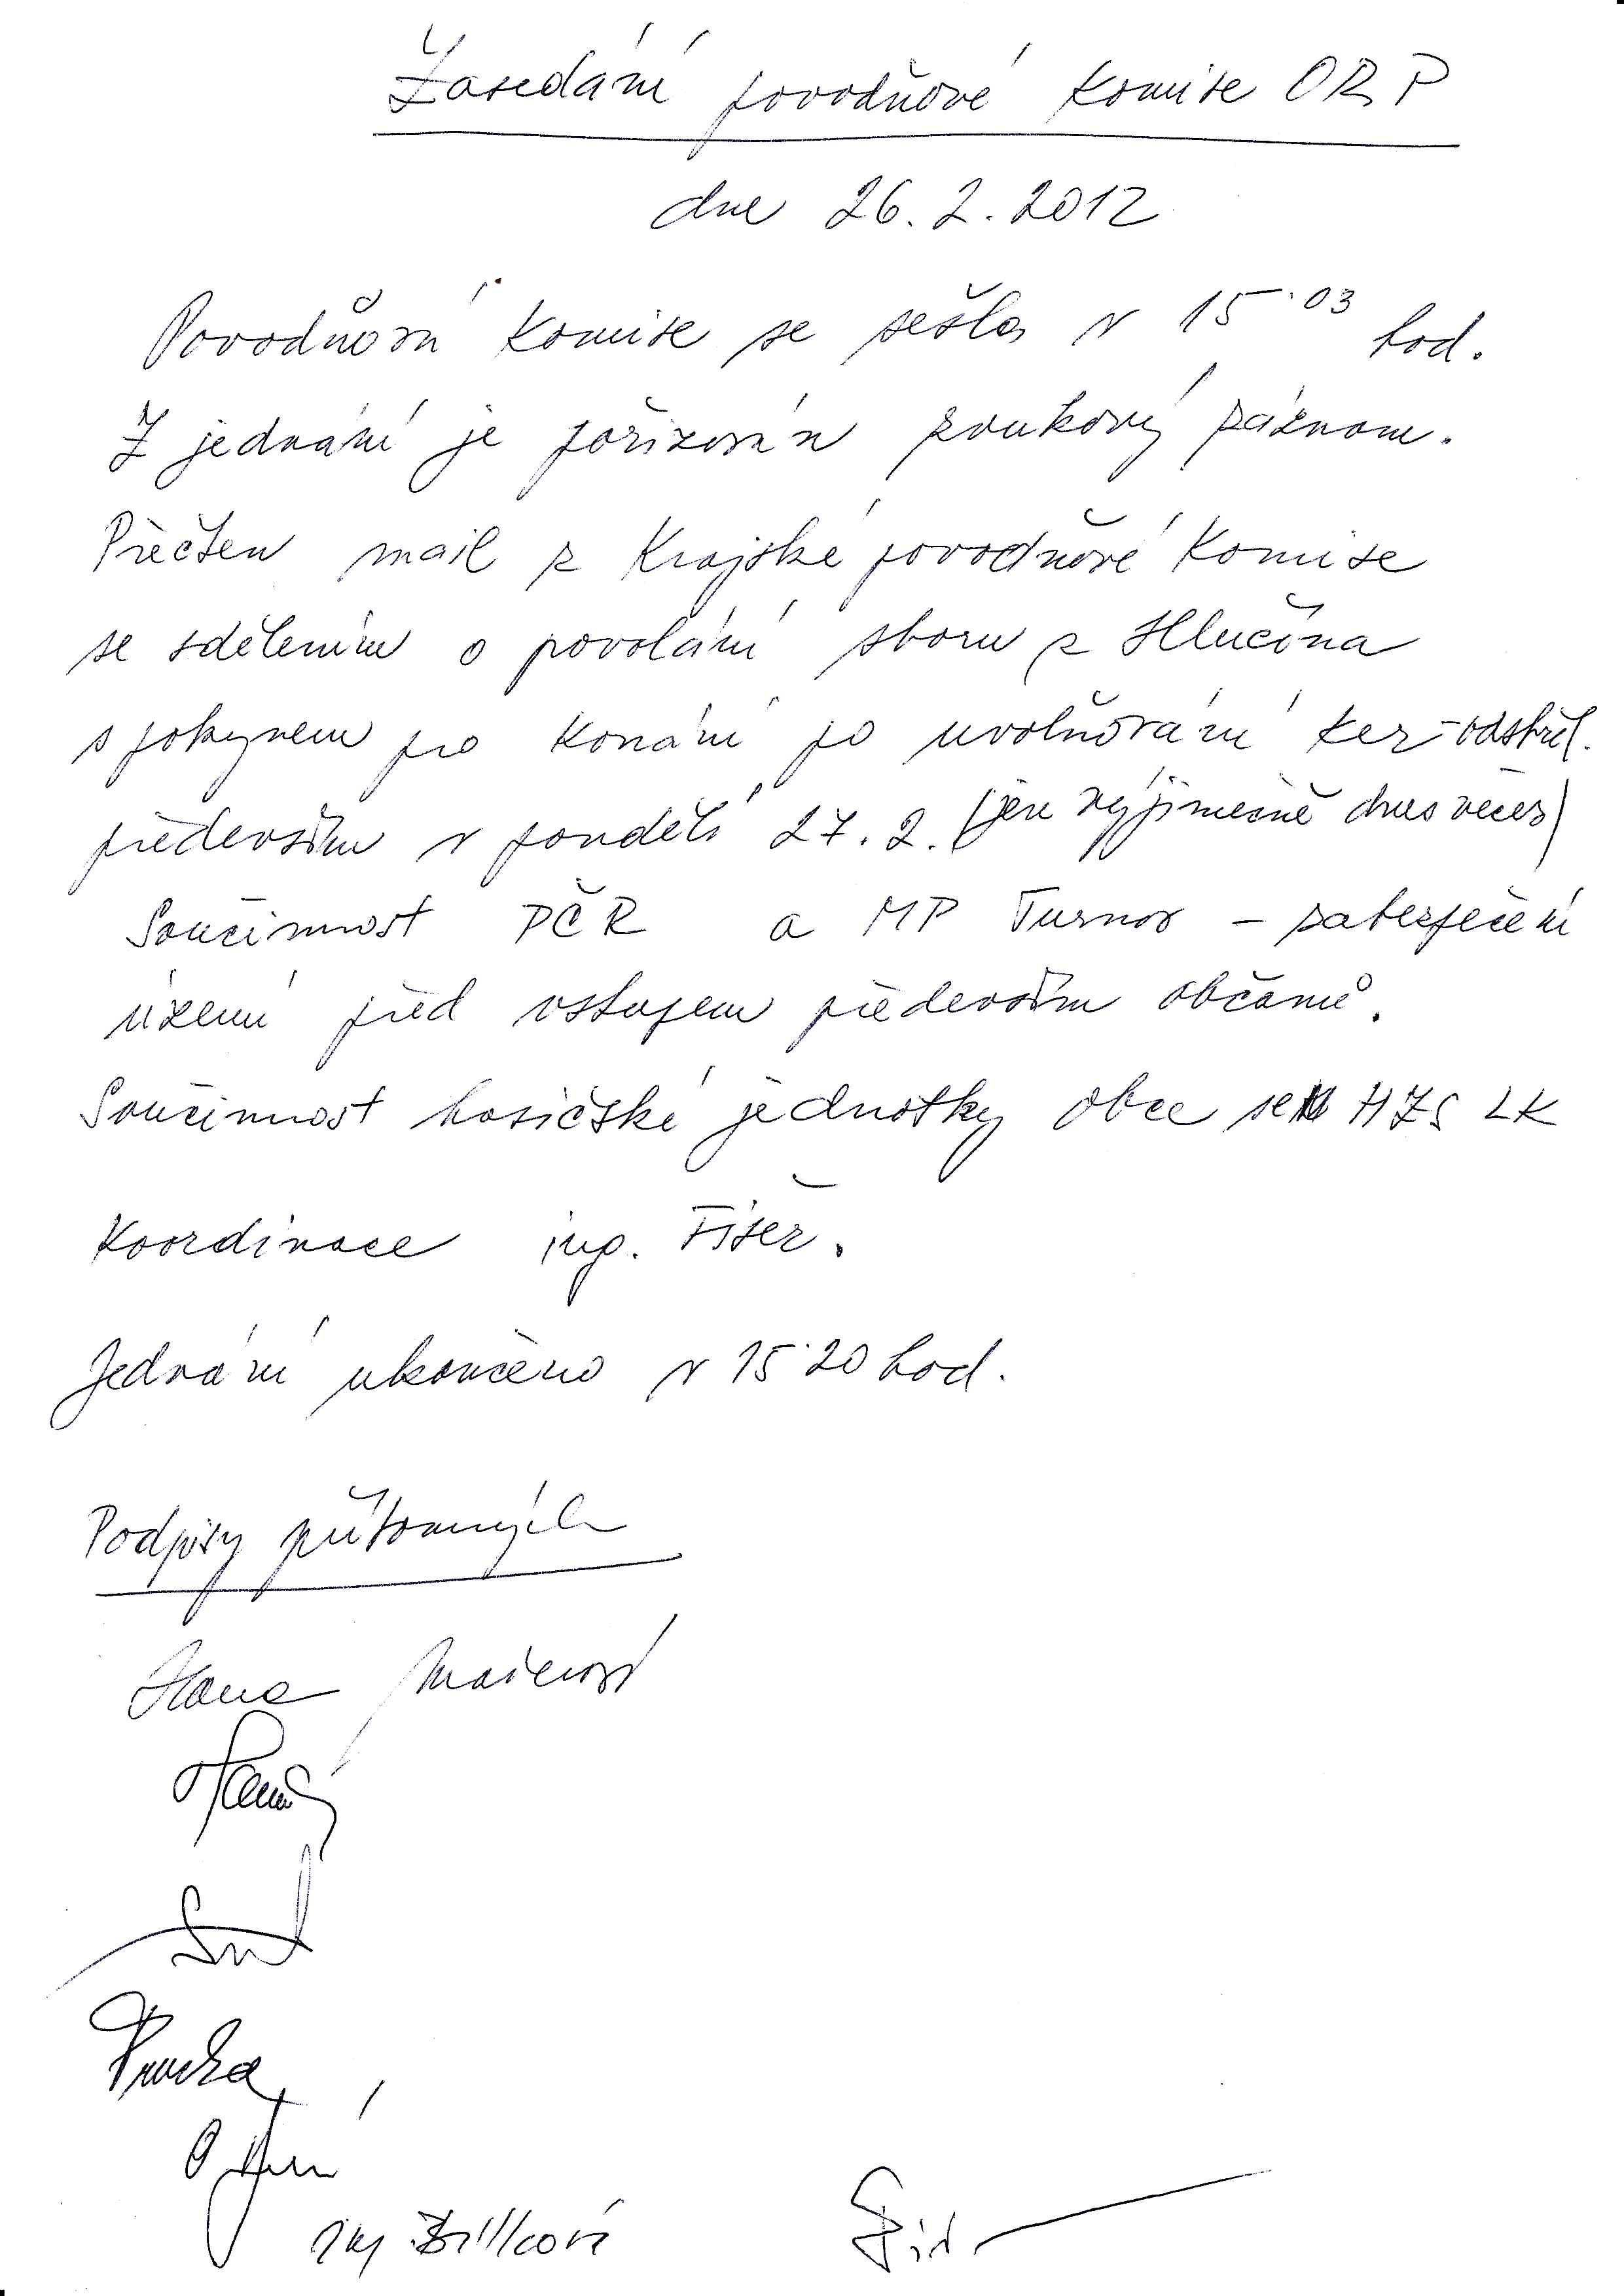 Zasedání povodňové komise ORP
dne 26. 2. 2012
Povodňová komise se sešla v 15:03 hod.
Z jednání je pořizován zvukový záznam.
Přečten mail z Krajské povodňové komise
se sdělením o povolání sboru z Hlučína
s pokynem pro konání po uvolňování ker - odstřel.
především v pondělí 27. 2. (jen výjimečně dnes večer)
Součinnost PČR a MP Turnov - zabezpečení
území před vstupem především občanů.
Součinnost hasičské jednotky obce se HZS LK
Koordinace ing. Fišer.
Jednání ukončeno v 15:20 hod.
Podpisy přítomných
Hana